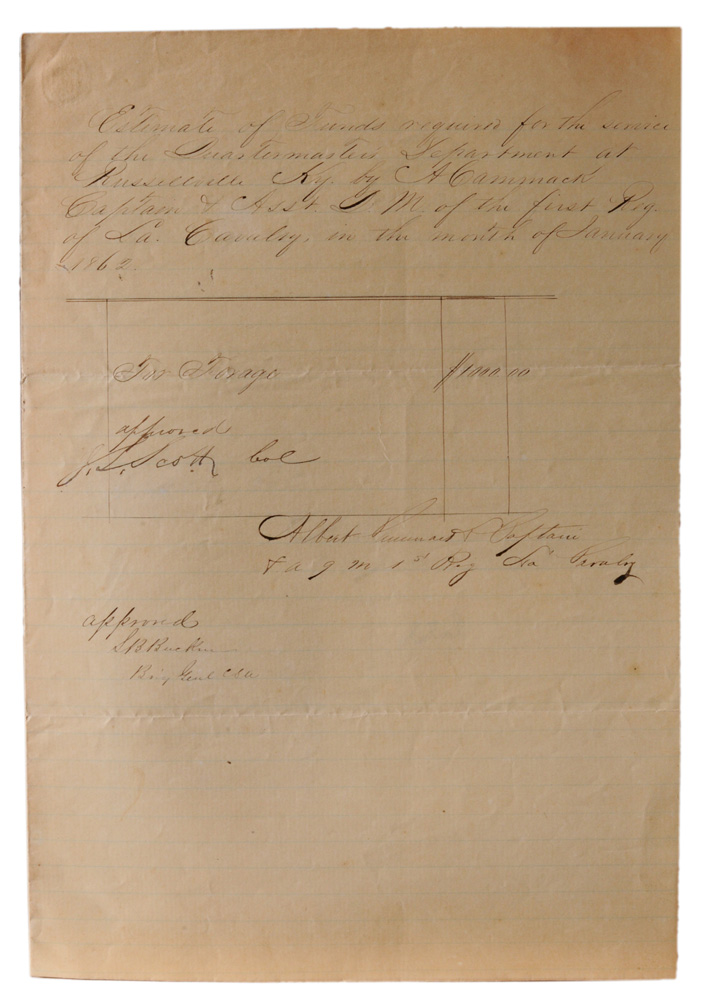 Estimate of Funds required for the service
of the Quartermasters Department at
Russellville Ky. by A Cammack
Captain & Asst. Q. M. of the first Reg.
of La. Cavalry, in the month of January
1862.
For Forage $1000.00
approved
J. S. Scott Col
Albert Captain
& a q m 1st Reg La Cavalry
approved
S B Buckner
Brig Genl CSA